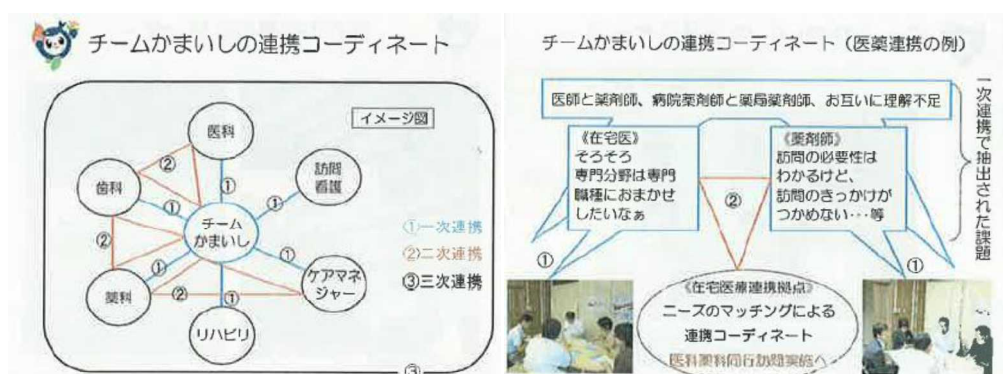 チームかまいしの連携コーディネート
イメージ図
医科
②
歯科
訪問
看護
①
①
①
チーム
かまいし
②
①
①
薬科
②
①
ケアマネ
ジャー
リハビリ
①一次連携
②二次連携
③三次連携
③
チームかまいしの連携コーディネート（医薬連携の例）
医師と薬剤師、病院薬剤師と薬局薬剤師、お互いに理解不足
《在宅医》
そろそろ
専門分野は専門
職種におまかせ
したいなぁ
②
《薬剤師》
訪問の必要性は
わかるけど、
訪問のきっかけが
つかめない…等
一次連携で抽出された課題
①
①
《在宅医療連携拠点》
ニーズのマッチングによる
連携コーディネート
医科薬科同行訪問実施へ